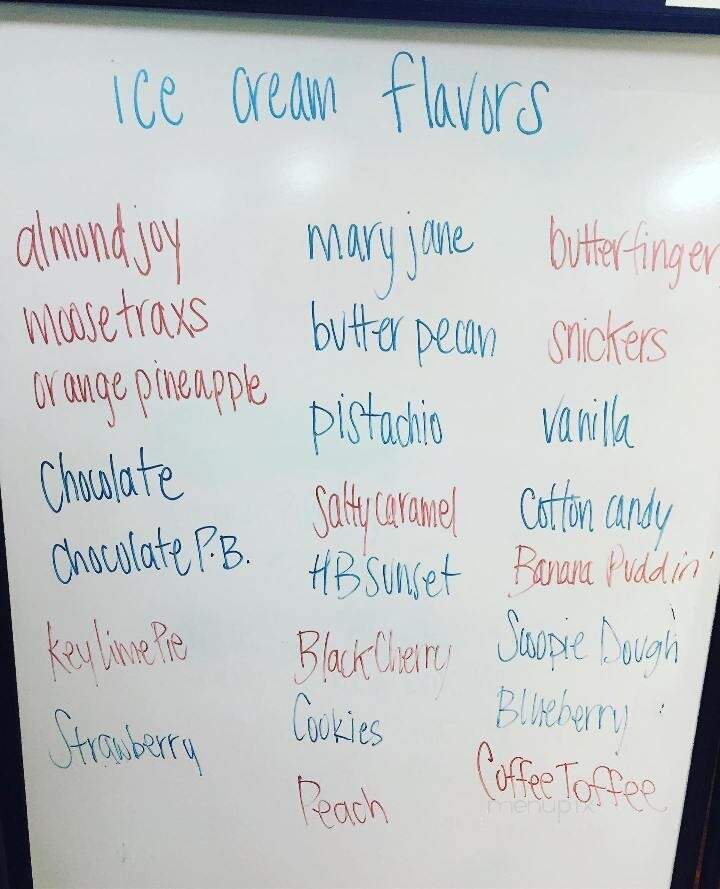 ice cream flavors
almond joy
moose traxs
orange pineapple
Chocolate
chocolate P.B.
key lime Pie
Strawberry
mary jane
butter pecan
pistachio
Salty caramel
HB Sunset
Black Cherry
Cookies
Peach
butterfinger
snickers
vanilla
Cotton candy
Banana Puddin'
Scoopie Dough
Blueberry
Coffee Toffee
menupix